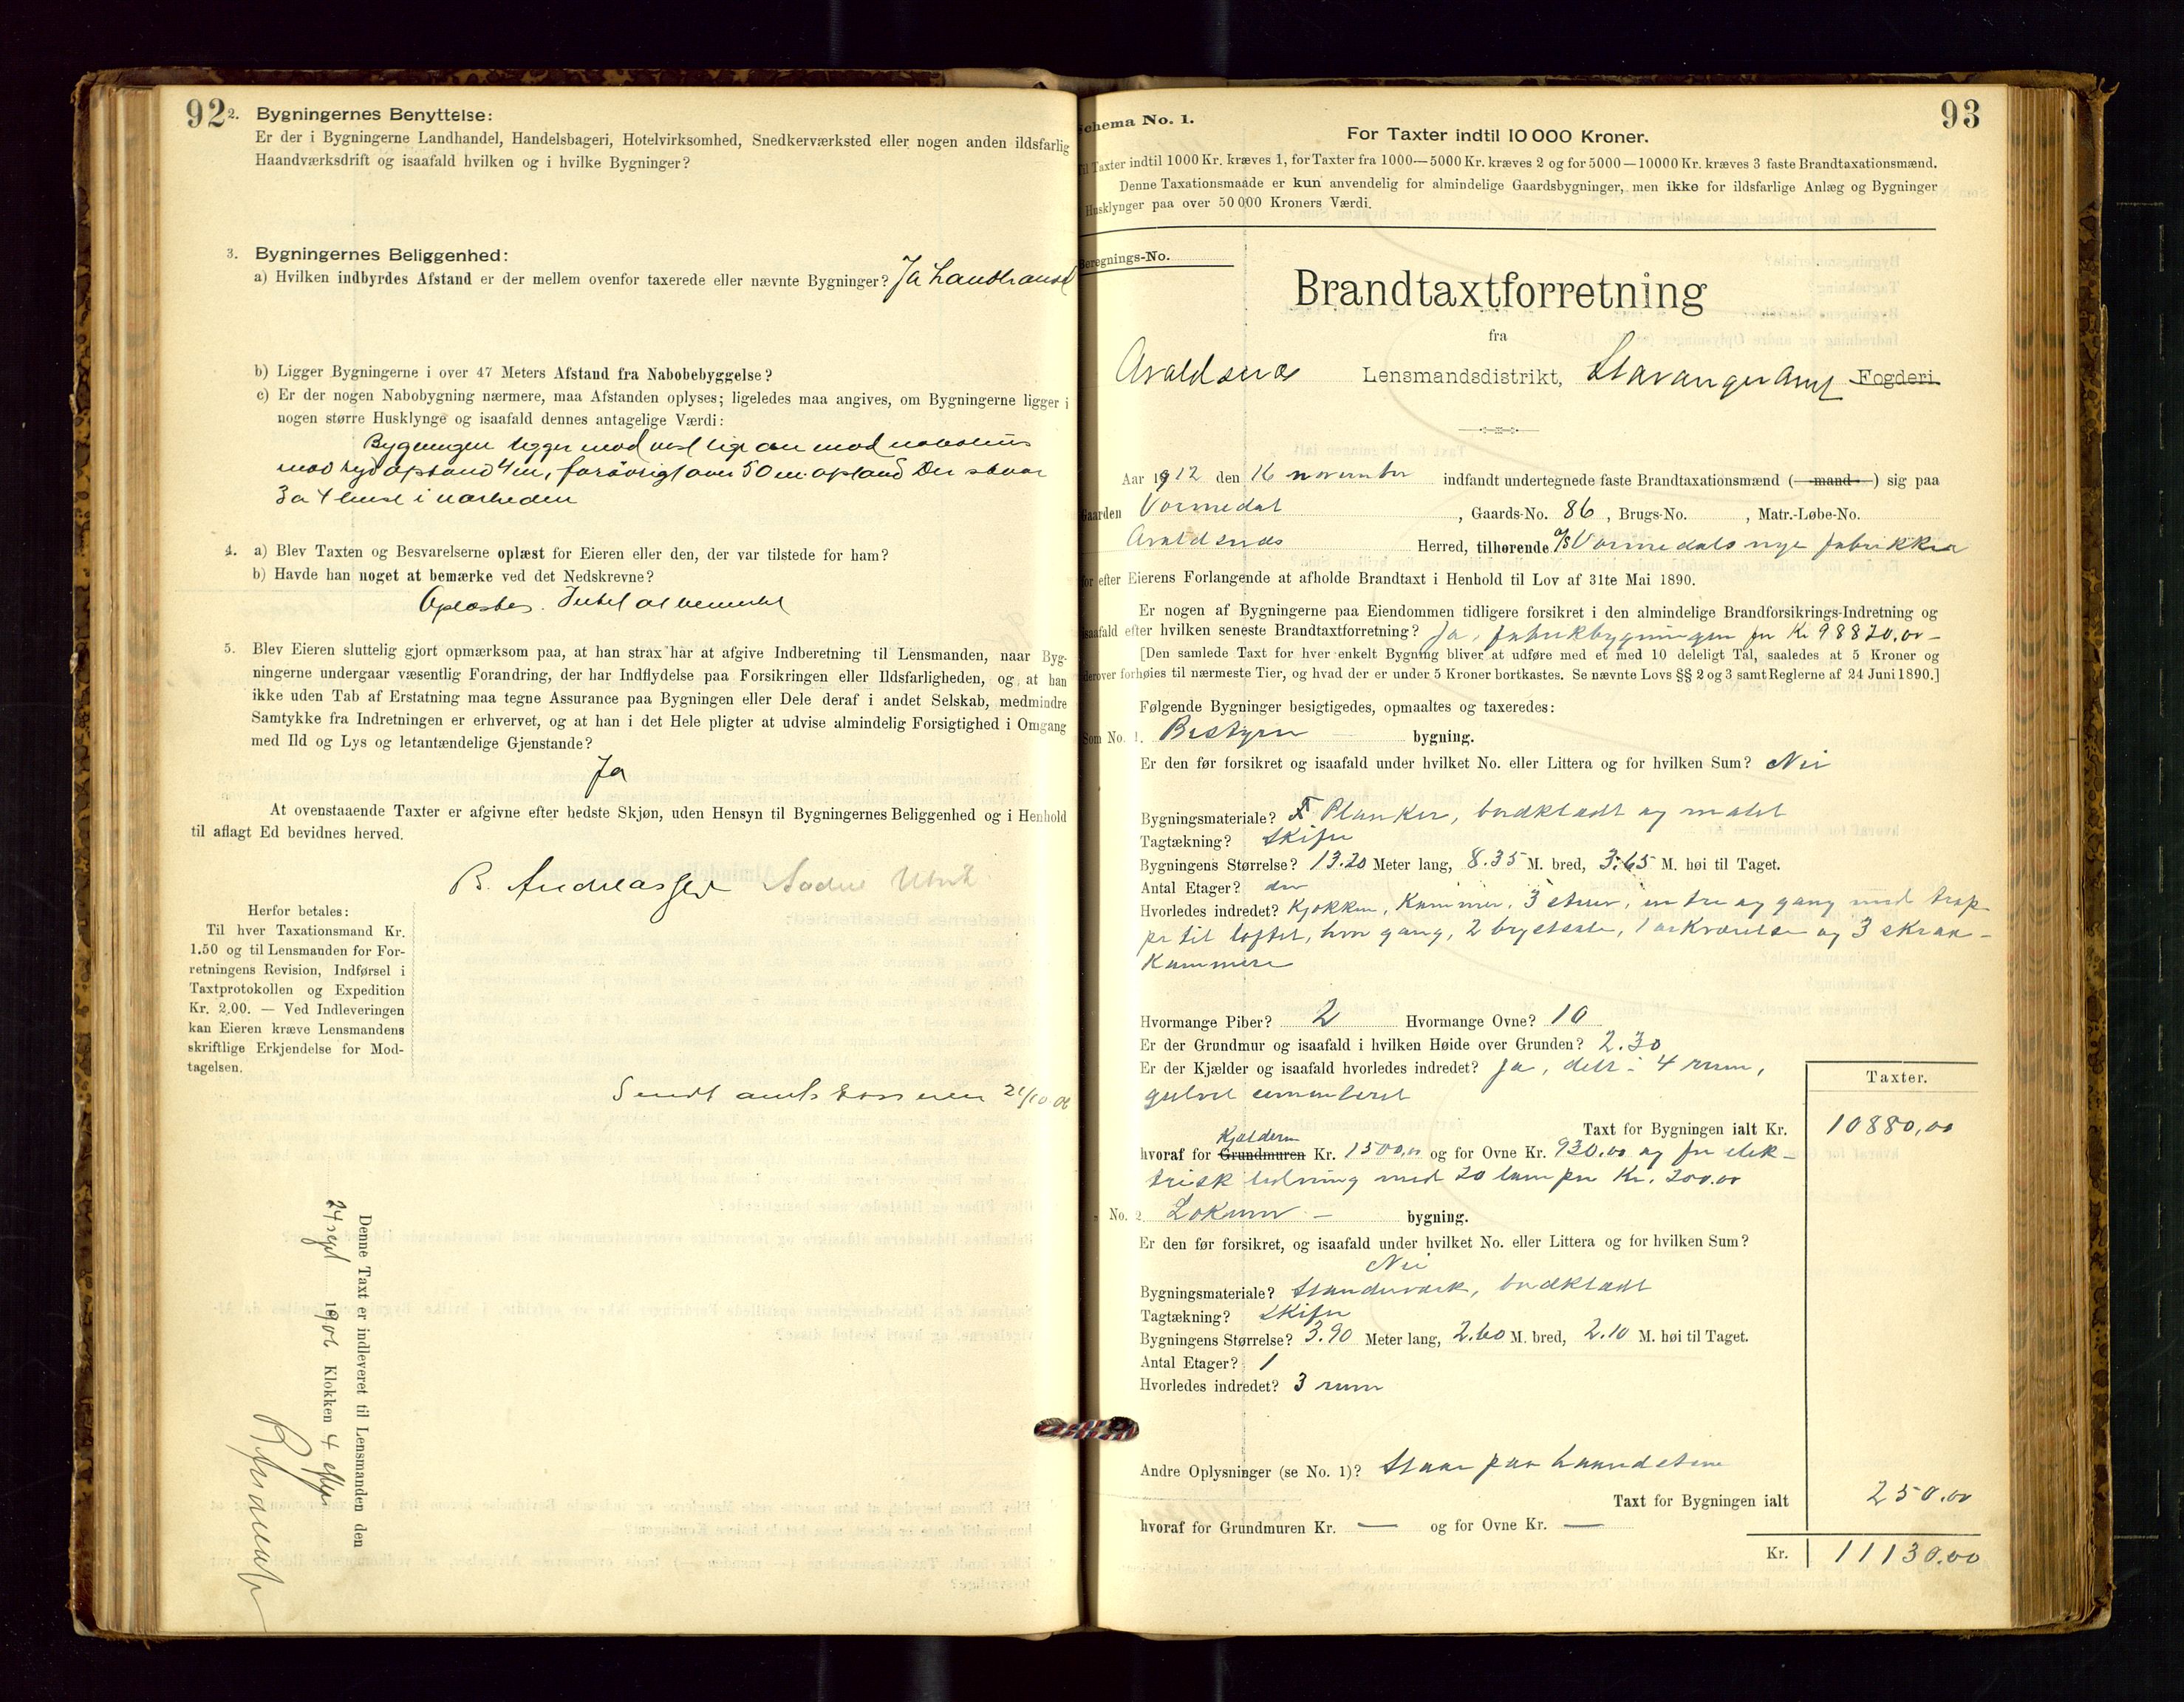 92
2. Bygningernes Benyttelse:
Er der i Bygningerne Landhandel, Handelsbageri, Hotelvirksomhed, Snedkerværksted eller nogen anden ildsfarlig
Haandværksdrift og isaafald hvilken og i hvilke Bygninger?
3. Bygningernes Beliggenhed:
a) Hvilken indbyrdes Afstand er der mellem ovenfor taxerede eller nævnte Bygninger? Ja
b) Ligger Bygningerne i over 47 Meters Afstand fra Nabobebyggelse?
c) Er der nogen Nabobygning nærmere, maa Afstanden oplyses; ligeledes maa angives, om Bygningerne ligger i
nogen større Husklynge og isaafald dennes antagelige Værdi:
Bygningen ligger mod vest mod nabohus
mod syd afstand 4 m, forövrigt over 50 m. afstand Der staar
3 a 4 huse i nærheden
4. a) Blev Taxten og Besvarelserne oplæst for Eieren eller den, der var tilstede for ham?
b) Havde han noget at bemærke ved det Nedskrevne?
Oplæstes. Intet at bemerket
5. Blev Eieren sluttelig gjort opmærksom paa, at han strax har at afgive Indberetning til Lensmanden, naar Byg-
ningerne undergaar væsentlig Forandring, der har Indflydelse paa Forsikringen eller Ildsfarligheden, og at han
ikke uden Tab af Erstatning maa tegne Assurance paa Bygningen eller Dele deraf i andet Selskab, medmindre
Samtykke fra Indretningen er erhvervet, og at han i det Hele pligter at udvise almindelig Forsigtighed i Omgang
med Ild og Lys og letantændelige Gjenstande?
Ja
At ovenstaaende Taxter er afgivne efter bedste Skjøn, uden Hensyn til Bygningernes Beliggenhed og i Henhold
til aflagt Ed bevidnes herved.
B. Andreassen
Herfor betales:
Til hver Taxationsmand Kr.
1.50 og til Lensmanden for For-
retningens Revision, Indførsel i
Taxtprotokollen og Expedition
Kr. 2,00. — Ved Indleveringen
kan Eieren kræve Lensmandens
skriftlige Erkjendelse for Mod-
tagelsen.
Sendt amtskassereren 21/10 06
Denne Taxt er indleveret til Lensmanden den
24 sept 1906 Klokken 4 eftm
93
Schema No. 1.
For Taxter indtil 10 000 Kroner.
Til Taxter indtil 1000 Kr. kræves 1, for Taxter fra 1000—5000 Kr. kræves 2 og for 5000—10000 Kr. kræves 3 faste Brandtaxationsmænd.
Denne Taxationsmaade er kun anvendelig for almindelige Gaardsbygninger, men ikke for ildsfarlige Anlæg og Bygninger
Husklynger paa over 50 000 Kroners Værdi.
Beregnings-No.
Brandtaxtforretning
fra
Avaldsnæs Lensmandsdistrikt, Stavanger Amt Fogderi
Aar 1912 den 16 november indfandt undertegnede faste Brandtaxationsmænd (mand) sig paa
Gaarden Vormedal, Gaards-No. 86, Brugs-No. , Matr.-Løbe-No.
Avaldsnes Herred, tilhørende A/S Vormedals nye fabrikker
for efter Eierens Forlangende at afholde Brandtaxt i Henhold til Lov af 31te Mai 1890.
Er nogen af Bygningerne paa Eiendommen tidligere forsikret i den almindelige Brandforsikrings-Indretning og
isaafald efter hvilken seneste Brandtaxtforretning? Ja, fabrikbygningen for Kr 98820.00-
[Den samlede Taxt for hver enkelt Bygning bliver at udføre med et med 10 deleligt Tal, saaledes at 5 Kroner og
derover forhøies til nærmeste Tier, og hvad der er under 5 Kroner bortkastes. Se nævnte Lovs §§ 2 og 3 samt Reglerne af 24 Juni 1890.]
Følgende Bygninger besigtigedes, opmaaltes og taxeredes:
Som No. 1. Bestyrer bygning.
Er den før forsikret og isaafald under hvilket No. eller Littera og for hvilken Sum? Nei
Bygningsmateriale? Planker, bordklædt og malet
Tagtækning? Skifer
Bygningens Størrelse? 13.20 Meter lang, 8.35 M. bred, 3.65 M. høi til Taget.
Antal Etager?
Hvorledes indredet? Kjøkken, Kammer, 3 stuer, entre og gang med trap-
pe til loftet, hvor gang, 2 , 1 arkværelse og 3 skraa-
Kammere
Hvormange Piber? 2 Hvormange Ovne? 10
Er der Grundmur og isaafald i hvilken Høide over Grunden? 2.30
Er der Kjælder og isaafald hvorledes indredet? Ja, delt i 4 rum,
gulvet cementeret
Taxter.
Taxt for Bygningen ialt Kr. 10880,00
Kjælderen
hvoraf for Grundmuren Kr. 1500,00 og for Ovne Kr. 930.00 og for elek-
trisk ledning med 20 lamper Kr. 200.00
" No. 2 Lokum - bygning.
Er den før forsikret, og isaafald under hvilket No. eller Littera og for hvilken Sum?
Nei
Bygningsmateriale? Standerværk, bordklædt
Tagtækning? Skifer
Bygningens Størrelse? 3.90 Meter lang, 2.60 M. bred, 2.10 M. høi til Taget.
Antal Etager? 1
Hvorledes indredet? 3 rum
Andre Oplysninger (se No. 1)? Staar paa
Taxt for Bygningen ialt 250.00
hvoraf for Grundmuren Kr. — og for Ovne Kr. —
Kr. 11130.00